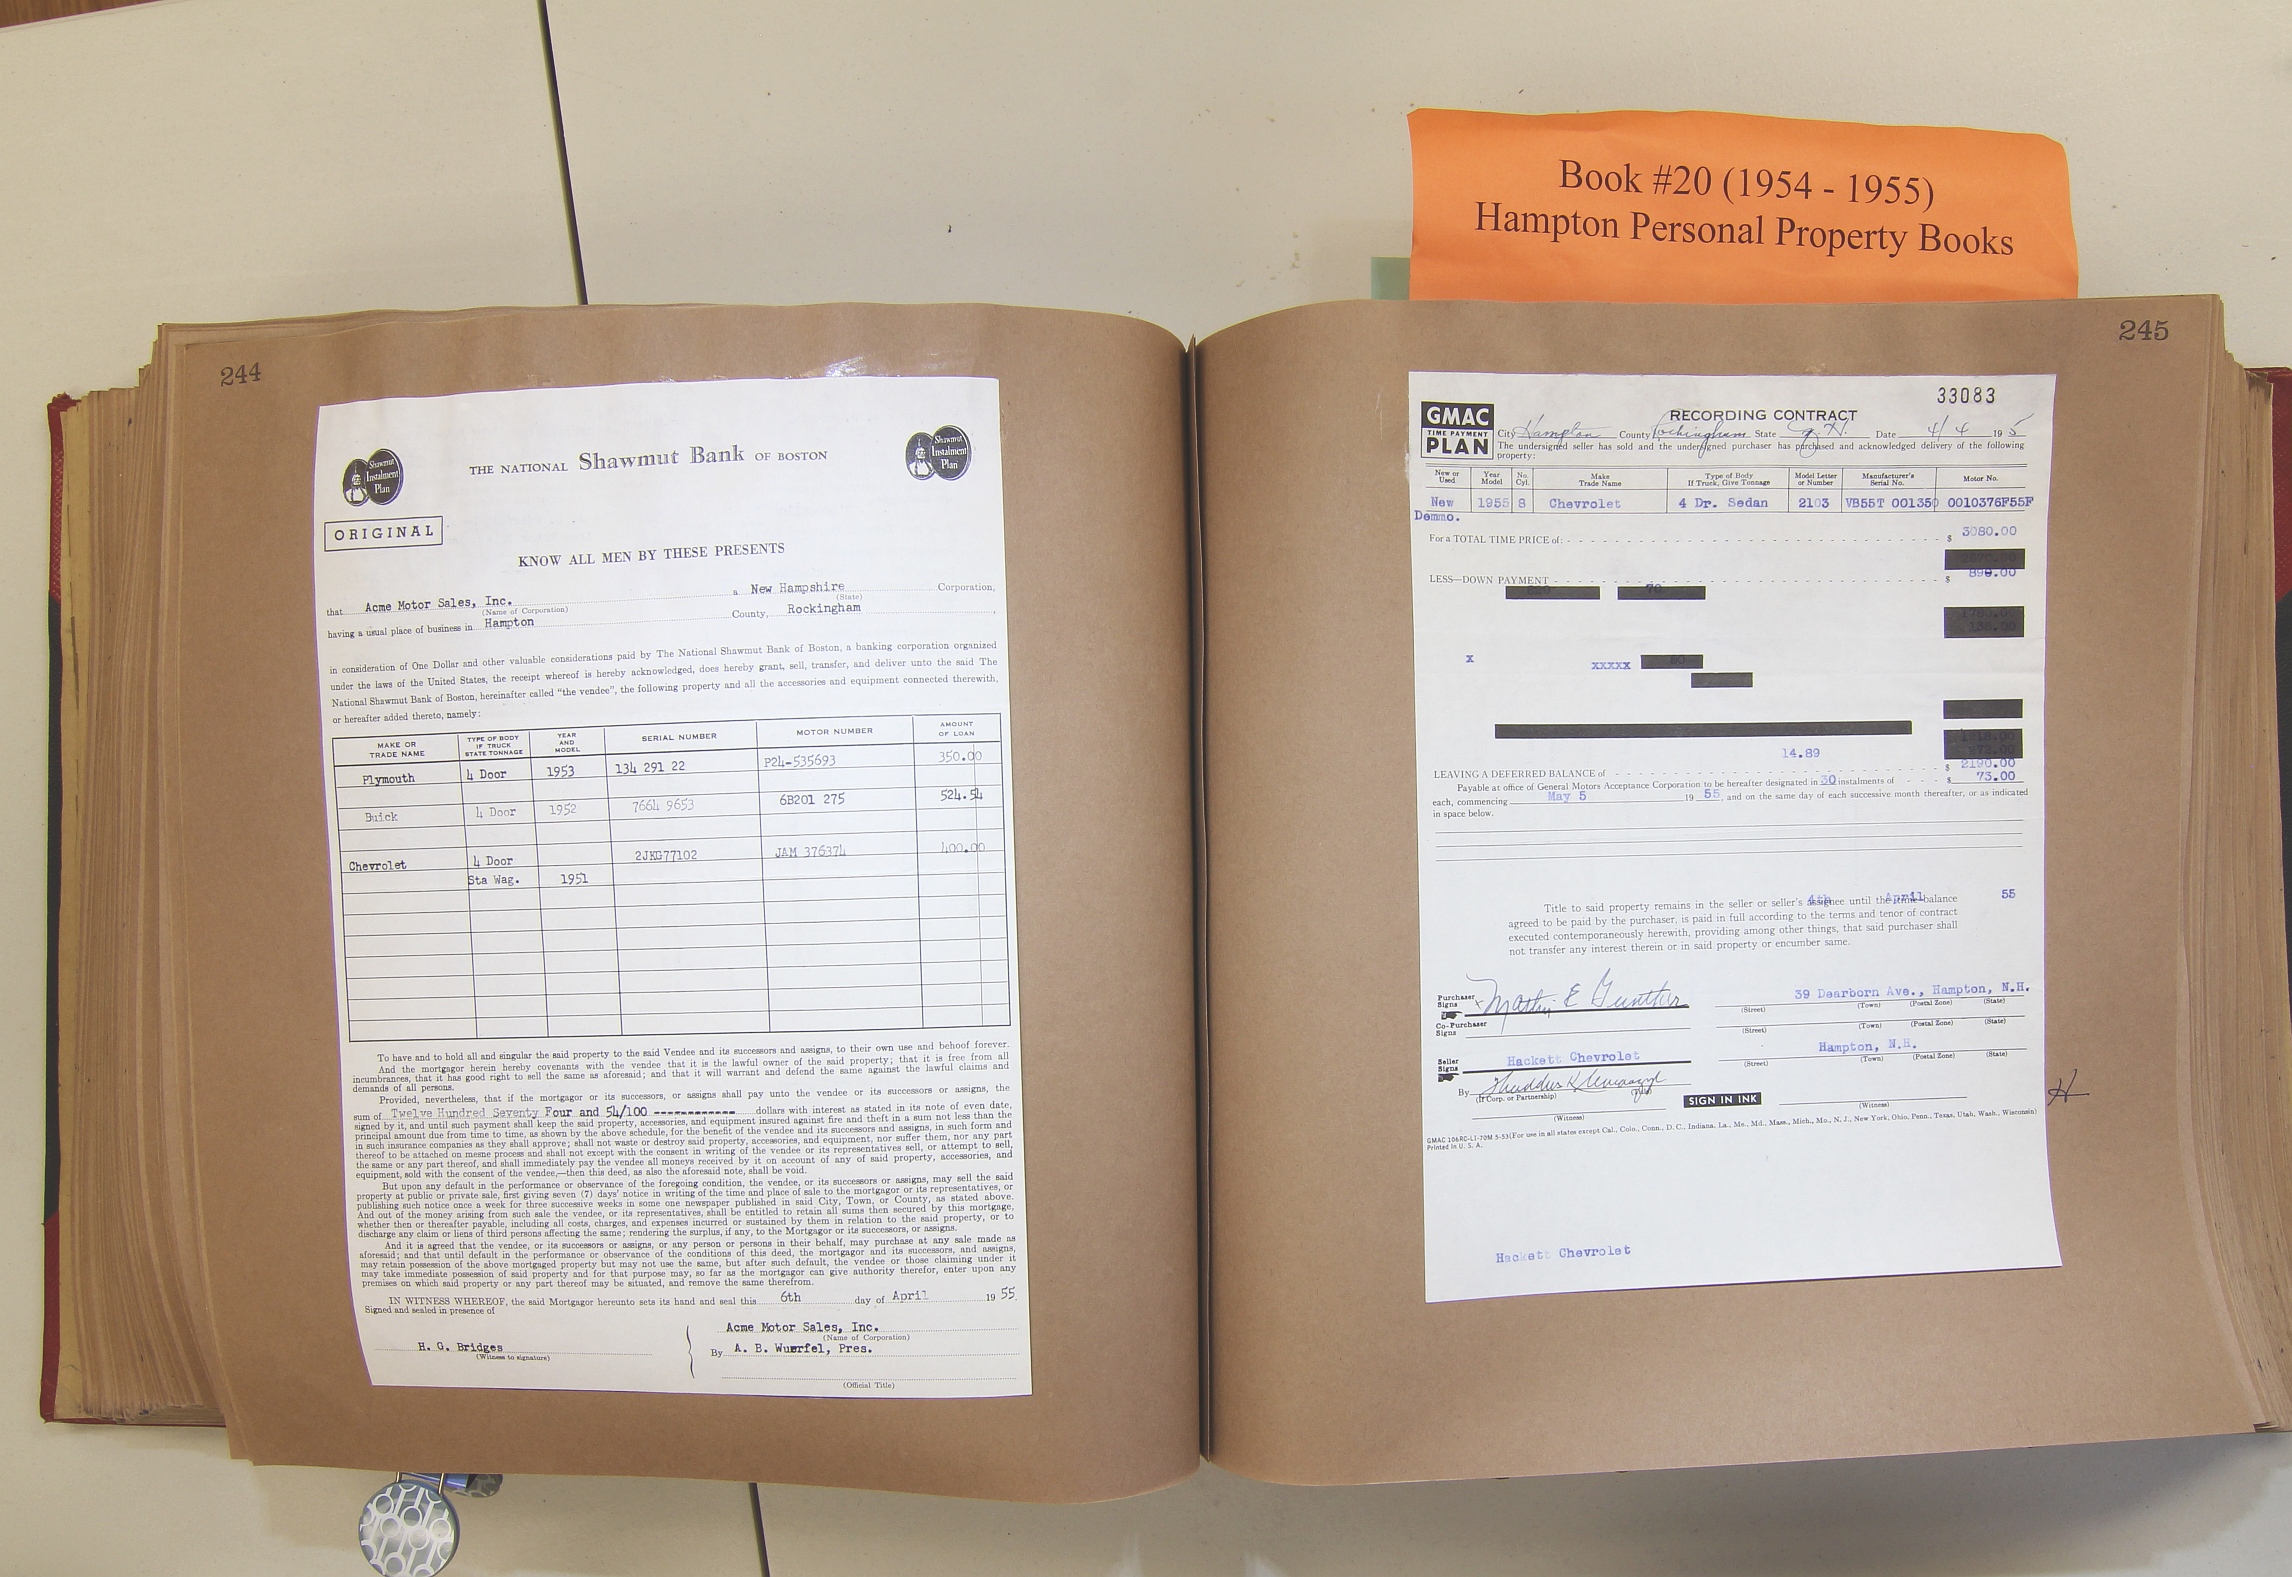 Book #20 (1954 - 1955)
Hampton Personal Property Books
244
Shawmut Instalment Plan
THE NATIONAL Shawmut Bank OF BOSTON
Shawmut Instalment Plan
ORIGINAL
KNOW ALL MEN BY THESE PRESENTS
that Acme Motor Sales, Inc. a New Hampshire Corporation,
(Name of Corporation) (State)
having a usual place of business in Hampton County, Rockingham,
in consideration of One Dollar and other valuable considerations paid by The National Shawmut Bank of Boston, a banking corporation organized
under the laws of the United States, the receipt whereof is hereby acknowledged, does hereby grant, sell, transfer, and deliver unto the said The
National Shawmut Bank of Boston, hereinafter called "the vendee", the following property and all the accessories and equipment connected therewith,
or hereafter added thereto, namely:
MAKE OR TRADE NAME TYPE OF BODY IF TRUCK STATE TONNAGE YEAR AND MODEL SERIAL NUMBER MOTOR NUMBER AMOUNT OF LOAN
Plymouth 4 Door 1953 134 291 22 P24-535693 350.00
Buick 4 Door 1952 7664 9653 6B201 275 524.54
Chevrolet 4 Door 2JKG77102 JAM 376374 400.00
Sta Wag. 1951
To have and to hold all and singular the said property to the said Vendee and its successors and assigns, to their own use and behoof forever.
And the mortgagor herein hereby covenants with the vendee that it is the lawful owner of the said property; that it is free from all
incumbrances, that it has good right to sell the same as aforesaid; and that it will warrant and defend the same against the lawful claims and
demands of all persons.
Provided, nevertheless, that if the mortgagor, or its successors, or assigns shall pay unto the vendee or its successors or assigns, the
sum of Twelve Hundred Seventy Four and 54/100 ------------ dollars with interest as stated in its note of even date,
signed by it, and until such payment shall keep the said property, accessories, and equipment insured against fire and theft in a sum not less than the
principal amount due from time to time, as shown by the above schedule, for the benefit of the vendee and its successors and assigns, in such form and
in such insurance companies as they shall approve; shall not waste or destroy said property, accessories, and equipment, nor suffer them, nor any part
thereof to be attached on mesne process and shall not except with the consent in writing of the vendee or its representatives sell, or attempt to sell,
the same or any part thereof, and shall immediately pay the vendee all moneys received by it on account of any of said property, accessories, and
equipment, sold with the consent of the vendee,—then this deed, as also the aforesaid note, shall be void.
But upon any default in the performance or observance of the foregoing condition, the vendee, or its successors or assigns, may sell the said
property at public or private sale, first giving seven (7) days' notice in writing of the time and place of sale to the mortgagor or its representatives, or
publishing such notice once a week for three successive weeks in some one newspaper published in said City, Town, or County, as stated above.
And out of the money arising from such sale the vendee, or its representatives, shall be entitled to retain all sums then secured by this mortgage,
whether then or thereafter payable, including all costs, charges, and expenses incurred or sustained by them in relation to the said property, or to
discharge any claim or liens of third persons affecting the same; rendering the surplus, if any, to the Mortgagor or its successors, or assigns.
And it is agreed that the vendee, or its successors or assigns, or any person or persons in their behalf, may purchase at any sale made as
aforesaid; and that until default in the performance or observance of the conditions of this deed, the mortgagor and its successors, and assigns,
may retain possession of the above mortgaged property but may not use the same, but after such default, the vendee or those claiming under it
may take immediate possession of said property and for that purpose may, so far as the mortgagor can give authority therefor, enter upon any
premises on which said property or any part thereof may be situated, and remove the same therefrom.
IN WITNESS WHEREOF, the said Mortgagor hereunto sets its hand and seal this 6th day of April 19 55.
Signed and sealed in presence of
Acme Motor Sales, Inc.
(Name of Corporation)
H. G. Bridges
(Witness to signature)
By A. B. Wuerfel, Pres.
(Official Title)
245
33083
GMAC
TIME PAYMENT
PLAN
RECORDING CONTRACT
City Hampton County Rockingham State N.H. Date 4/4 19 5
The undersigned seller has sold and the undersigned purchaser has purchased and acknowledged delivery of the following
property:
New or Used Year Model No. Cyl. Make Trade Name Type of Body If Truck, Give Tonnage Model Letter or Number Manufacturer's Serial No. Motor No.
New 1955 8 Chevrolet 4 Dr. Sedan 2103 VB55T 001350 0010376F55F
Demmo.
For a TOTAL TIME PRICE of: $ 3080.00
LESS—DOWN PAYMENT $ 890.00
x xxxxx
14.89
LEAVING A DEFERRED BALANCE of $ 2190.00
Payable at office of General Motors Acceptance Corporation to be hereafter designated in 30 instalments of $ 73.00
each, commencing May 5 19 55, and on the same day of each successive month thereafter, or as indicated
in space below.
4th April 55
Title to said property remains in the seller or seller's assignee until the time balance
agreed to be paid by the purchaser, is paid in full according to the terms and tenor of contract
executed contemporaneously herewith, providing among other things, that said purchaser shall
not transfer any interest therein or in said property or encumber same.
Purchaser Signs x E Gunther 39 Dearborn Ave., Hampton, N.H.
(Street) (Town) (Postal Zone) (State)
Co-Purchaser Signs
(Street) (Town) (Postal Zone) (State)
Seller Signs Hackett Chevrolet Hampton, N.H.
(Street) (Town) (Postal Zone) (State)
By
(If Corp. or Partnership)
SIGN IN INK
(Witness) (Witness)
H
GMAC 106RC-LI-70M 5-53 (For use in all states except Cal., Colo., Conn., D. C., Indiana, La., Me., Md., Mass., Mich., Mo., N. J., New York, Ohio, Penn., Texas, Utah, Wash., Wisconsin)
Printed in U. S. A.
Hackett Chevrolet